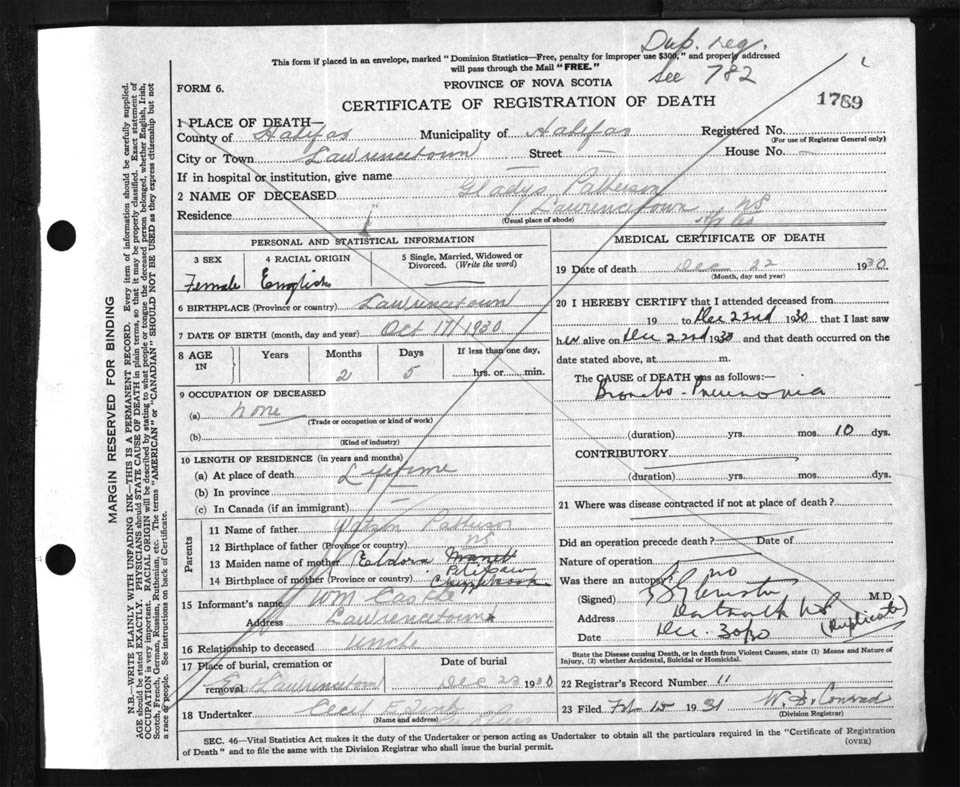 Dup. reg.
See 782
This form if placed in an envelope, marked "Dominion Statistics—Free, penalty for improper use $300," and properly addressed
will pass through the Mail "FREE."
FORM 6.
PROVINCE OF NOVA SCOTIA
CERTIFICATE OF REGISTRATION OF DEATH
1769
1 PLACE OF DEATH—
County of Halifax Municipality of Halifax Registered No.
(For use of Registrar General only)
City or Town Lawrencetown Street — House No. —
If in hospital or institution, give name —
2 NAME OF DECEASED Gladys Patterson
Residence Lawrencetown NS
(Usual place of abode)
PERSONAL AND STATISTICAL INFORMATION
3 SEX 4 RACIAL ORIGIN 5 Single, Married, Widowed or Divorced. (Write the word)
Female English —
6 BIRTHPLACE (Province or country) Lawrencetown
7 DATE OF BIRTH (month, day and year) Oct 17/1930
8 AGE IN Years Months Days If less than one day,
2 5 hrs. or min.
9 OCCUPATION OF DECEASED
(a) none
(Trade or occupation or kind of work)
(b)
(Kind of industry)
10 LENGTH OF RESIDENCE (in years and months)
(a) At place of death Lifetime
(b) In province —
(c) In Canada (if an immigrant)
Parents
11 Name of father Patterson
12 Birthplace of father (Province or country) NS
13 Maiden name of mother Eldora
14 Birthplace of mother (Province or country)
15 Informant's name Wm
Address Lawrencetown
16 Relationship to deceased Uncle
17 Place of burial, cremation or removal Date of burial
Lawrencetown Dec 23 1930
18 Undertaker Cecil
(Name and address)
MEDICAL CERTIFICATE OF DEATH
19 Date of death Dec 22 1930
(Month, day and year)
20 I HEREBY CERTIFY that I attended deceased from
19 to Dec 22nd 1930 that I last saw
h er alive on Dec 22nd 1930 and that death occurred on the
date stated above, at m.
The CAUSE of DEATH was as follows:—
Broncho-Pneumonia
(duration) yrs. mos. 10 dys.
CONTRIBUTORY
(duration) yrs. mos. dys.
21 Where was disease contracted if not at place of death?
Did an operation precede death? Date of
Nature of operation
Was there an autopsy? no
(Signed) M.D.
Address Dartmouth NS
(Duplicate)
Date Dec. 30/30
State the Disease causing Death, or in death from Violent Causes, state (1) Means and Nature of
Injury, (2) whether Accidental, Suicidal or Homicidal.
22 Registrar's Record Number 11
23 Filed Feb 15 1931 W. B. Conrad
(Division Registrar)
SEC. 46—Vital Statistics Act makes it the duty of the Undertaker or person acting as Undertaker to obtain all the particulars required in the "Certificate of Registration
of Death" and to file the same with the Division Registrar who shall issue the burial permit.
(OVER)
MARGIN RESERVED FOR BINDING
N.B.—WRITE PLAINLY WITH UNFADING INK—THIS IS A PERMANENT RECORD. Every item of information should be carefully supplied.
AGE should be stated EXACTLY. PHYSICIANS should STATE CAUSE OF DEATH in plain terms, so that it may be properly classified. Exact statement of
OCCUPATION is very important. RACIAL ORIGIN will be described by stating to what people or tongue the deceased person belonged, whether English, Irish,
Scotch, French, German, Russian, Ruthenian, etc. The terms "AMERICAN" or "CANADIAN" SHOULD NOT BE USED as they express citizenship but not
a race or people. See instructions on back of Certificate.